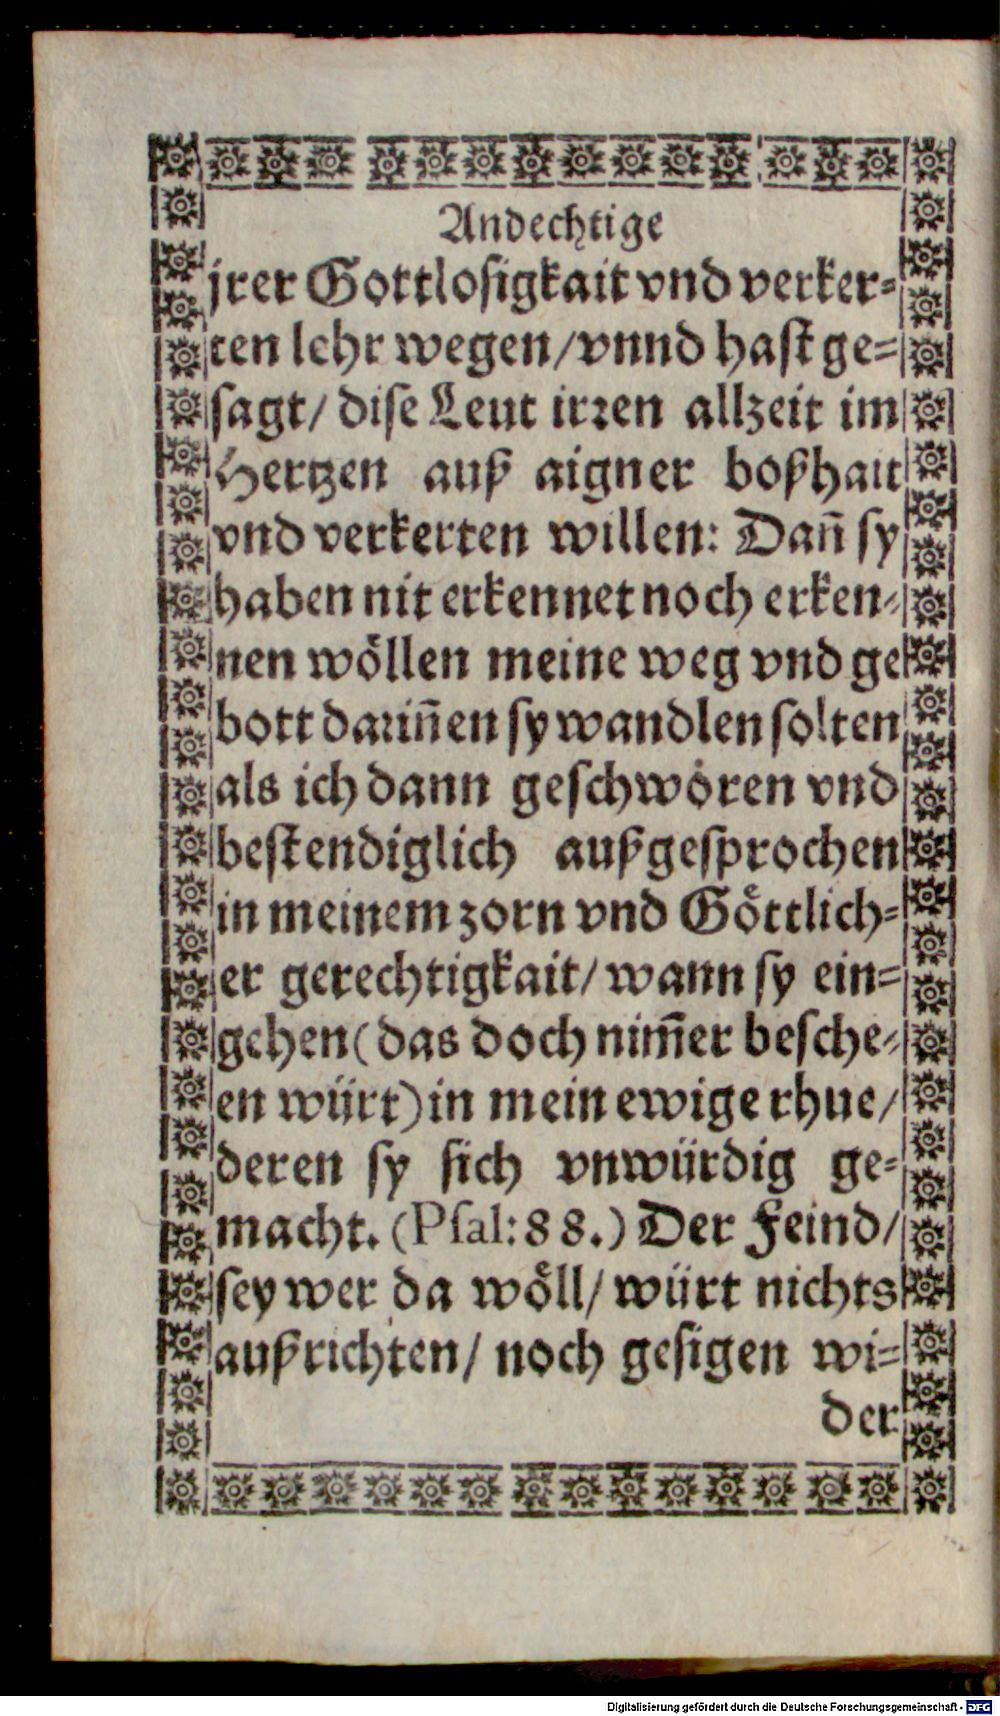 Andechtige
jrer Gottlosigkait vnd verker-
ten lehr wegen/vnnd hast ge-
sagt/ dise Leut irren allzeit im
Hertzen auß aigner boßhait
vnd verkerten willen: Dañ sy
haben nit erkennet noch erken-
nen wöllen meine weg vnd ge
bott dariñen sy wandlen solten
als ich dann geschworen vnd
bestendiglich außgesprochen
in meinem zorn vnd Göttlich-
er gerechtigkait/ wann sy ein-
gehen (das doch nim̃er besche-
en würt) in mein ewige rhue/
deren sy sich vnwürdig ge-
macht. (Psal: 88.) Der Feind/
sey wer da wöll/ würt nichts
außrichten/ noch gesigen wi-
der
Digitalisierung gefördert durch die Deutsche Forschungsgemeinschaft - DFG